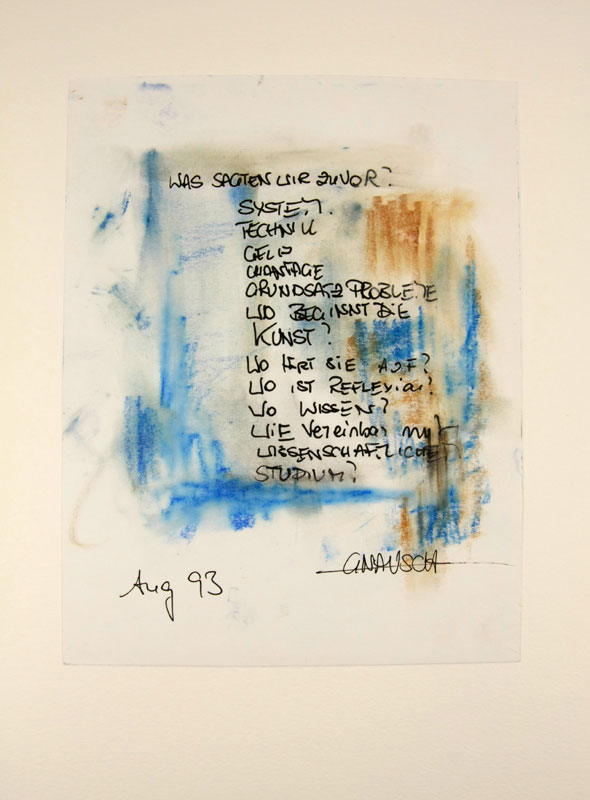 WAS SAGTEN WIR ZUVOR?
SYSTEM.
TECHNIK
GELD
GRUNDSATZ PROBLEME
WO BEGINNT DIE
KUNST?
WO HÖRT SIE AUF?
WO IST REFLEXION?
WO WISSEN?
WIE Vereinbar mit
WISSENSCHAFTLICHEM
STUDIUM?
GNAUSCH
Aug 93